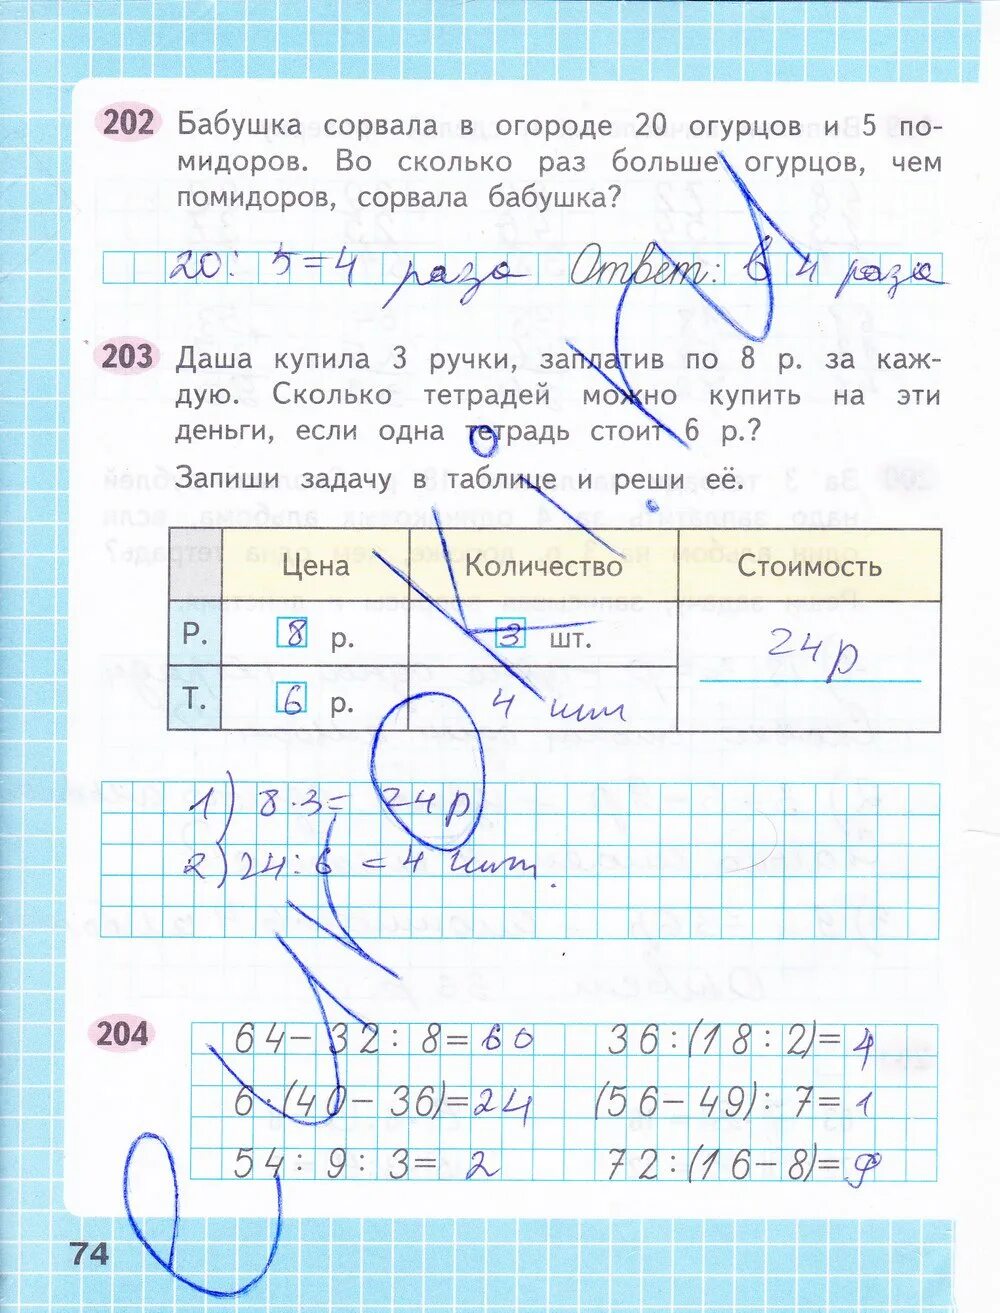 202 Бабушка сорвала в огороде 20 огурцов и 5 по-
мидоров. Во сколько раз больше огурцов, чем
помидоров, сорвала бабушка?
20 : 5 = 4 раза Ответ: в 4 раза
203 Даша купила 3 ручки, заплатив по 8 р. за каж-
дую. Сколько тетрадей можно купить на эти
деньги, если одна тетрадь стоит 6 р.?
Запиши задачу в таблице и реши её.
Цена Количество Стоимость
Р. 8 р. 3 шт. 24 р
Т. 6 р. 4 шт
1) 8 · 3 = 24 р
2) 24 : 6 = 4 шт.
204 64 − 32 : 8 = 60 36 : (18 : 2) = 4
6 · (40 − 36) = 24 (56 − 49) : 7 = 1
54 : 9 : 3 = 2 72 : (16 − 8) = 9
74